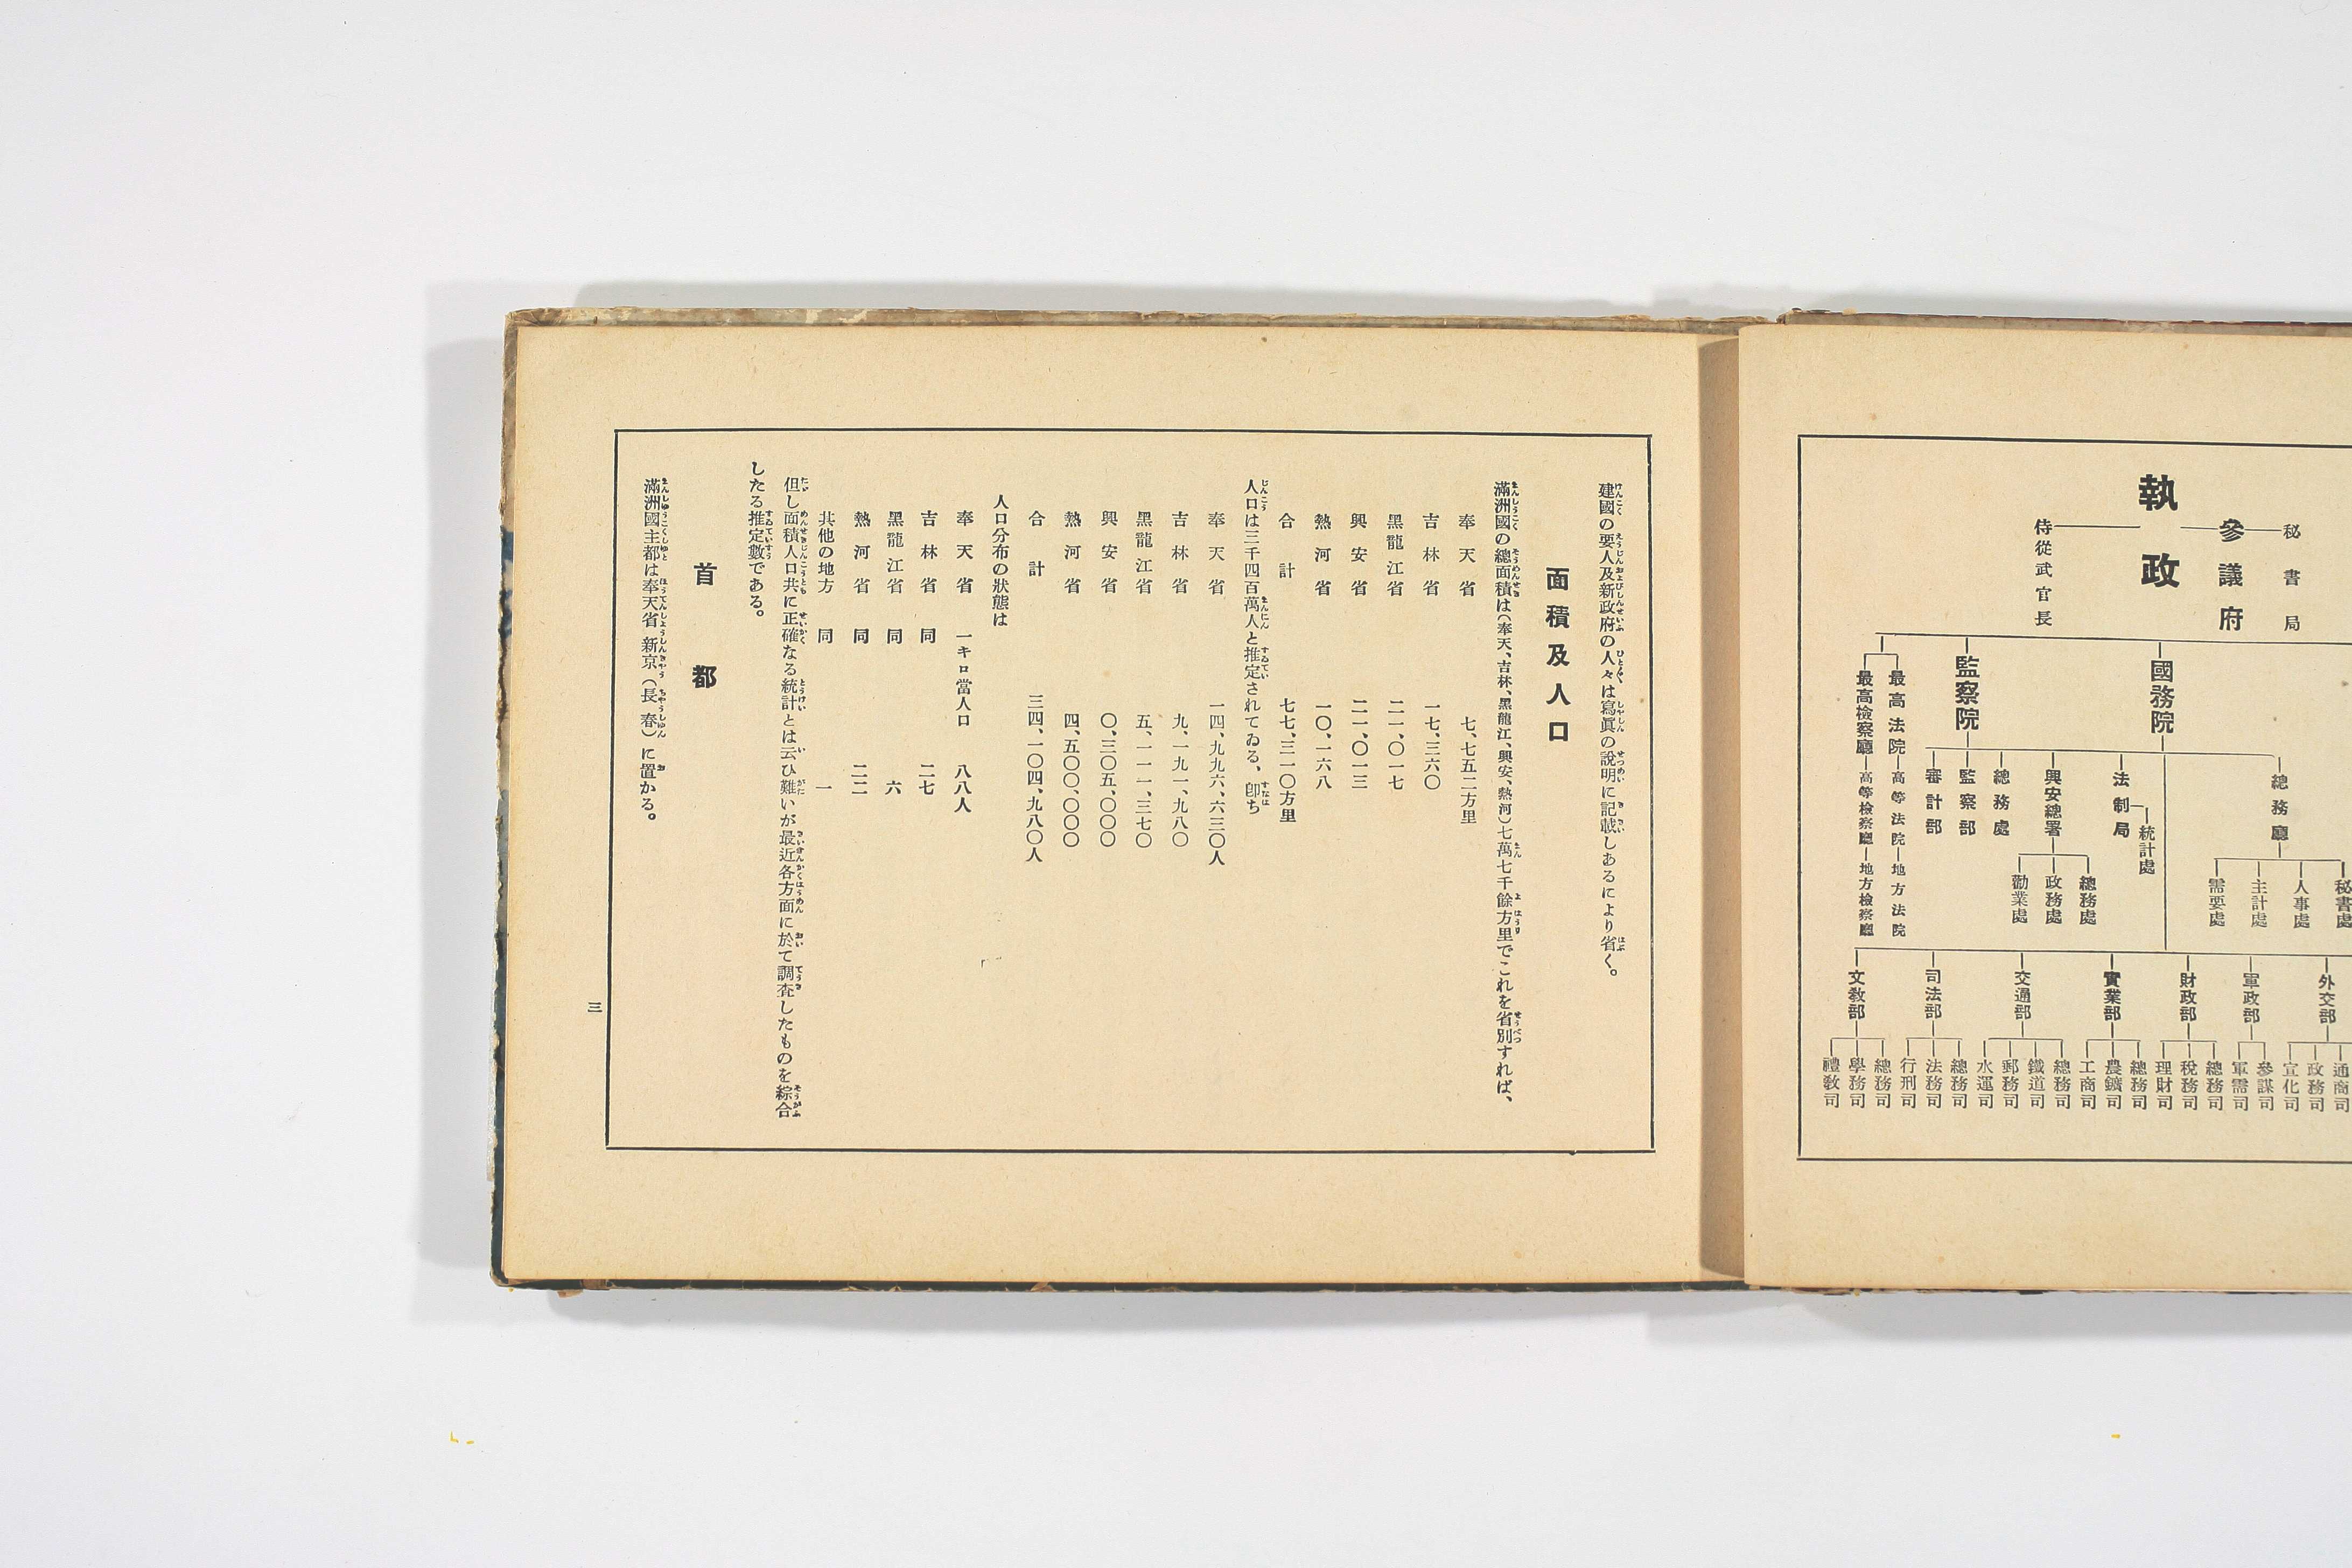 執政
參議府
秘書局
侍從武官長
國務院
監察院
最高法院
高等法院
地方法院
最高檢察廳
高等檢察廳
地方檢察廳
總務廳
秘書處
人事處
主計處
需要處
法制局
統計處
興安總署
總務處
政務處
勸業處
總務處
監察部
審計部
外交部
通商司
政務司
宣化司
軍政部
參謀司
軍需司
財政部
總務司
稅務司
理財司
實業部
總務司
農鑛司
工商司
交通部
總務司
鐵道司
郵務司
水運司
司法部
總務司
法務司
行刑司
文敎部
總務司
學務司
禮敎司
建國の要人及新政府の人々は寫眞の說明に記載しあるにより省く。
面積及人口
滿洲國の總面積は(奉天、吉林、黑龍江、興安、熱河)七萬七千餘方里でこれを省別すれば、
奉天省 七、七五二方里
吉林省 一七、三六〇
黑龍江省 二一、〇一七
興安省 二一、〇一三
熱河省 一〇、一六八
合計 七七、三一〇方里
人口は三千四百萬人と推定されてゐる、卽ち
奉天省 一四、九九六、六三〇人
吉林省 九、一九一、九八〇
黑龍江省 五、一一一、三七〇
興安省 〇、三〇五、〇〇〇
熱河省 四、五〇〇、〇〇〇
合計 三四、一〇四、九八〇人
人口分布の狀態は
奉天省 一キロ當人口 八八人
吉林省 同 二七
黑龍江省 同 六
熱河省 同 二二
其他の地方 同 一
但し面積人口共に正確なる統計とは云ひ難いが最近各方面に於て調査したものを綜合
したる推定數である。
首都
滿洲國主都は奉天省新京(長春)に置かる。
三